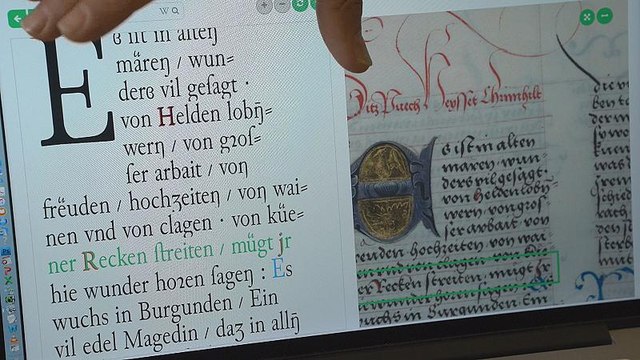 W
Eß iſt in alteŋ
märeŋ / wun=
derß vil geſagt ·
von Helden lobŋ̄=
werŋ / von gꝛoſ=
ſer arbait / voŋ
freüden / hochʒeiteŋ / voŋ wai=
nen vnd von clagen · von küe=
ner Recken ſtreiten / mügt jr
hie wunder hoꝛen ſageŋ : Es
wuchs in Burgunden / Ein
vil edel Magedin / daʒ in allŋ̄
Ditz Puech Heysset Chrimhilt
Es ist in alten
maren wun=
ders vil gesagt
von Helden lobn=
wern von gros
ser arbait von
euden hochzeiten von wai
nen vnd von clagen von kue
ner Recken streiten mugt jr
wuchs in Burgunden Ein